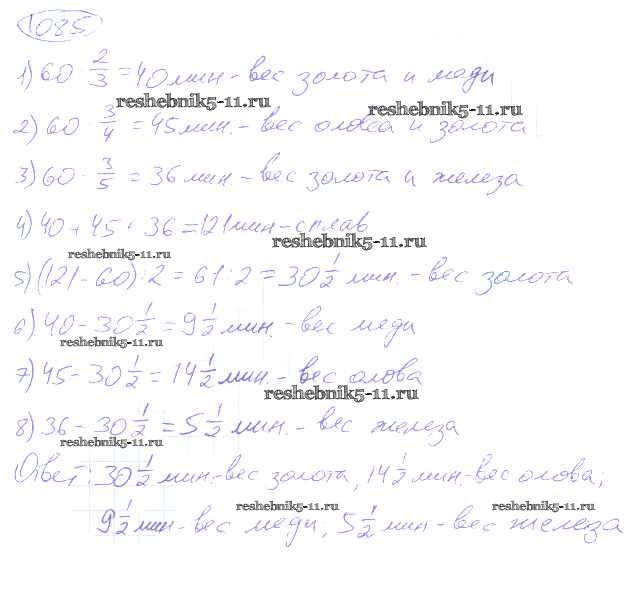 1085
1) 60 · 2/3 = 40 мин - вес золота и меди
reshebnik5-11.ru
reshebnik5-11.ru
2) 60 · 3/4 = 45 мин. - вес олова и золота
3) 60 · 3/5 = 36 мин - вес золота и железа
4) 40 + 45 + 36 = 121 мин - сплав
reshebnik5-11.ru
reshebnik5-11.ru
5) (121 - 60) : 2 = 61 : 2 = 30 1/2 мин. - вес золота
6) 40 - 30 1/2 = 9 1/2 мин. - вес меди
reshebnik5-11.ru
7) 45 - 30 1/2 = 14 1/2 мин. - вес олова
reshebnik5-11.ru
8) 36 - 30 1/2 = 5 1/2 мин. - вес железа
reshebnik5-11.ru
Ответ: 30 1/2 мин. - вес золота, 14 1/2 мин - вес олова;
reshebnik5-11.ru
reshebnik5-11.ru
9 1/2 мин - вес меди; 5 1/2 мин - вес железа